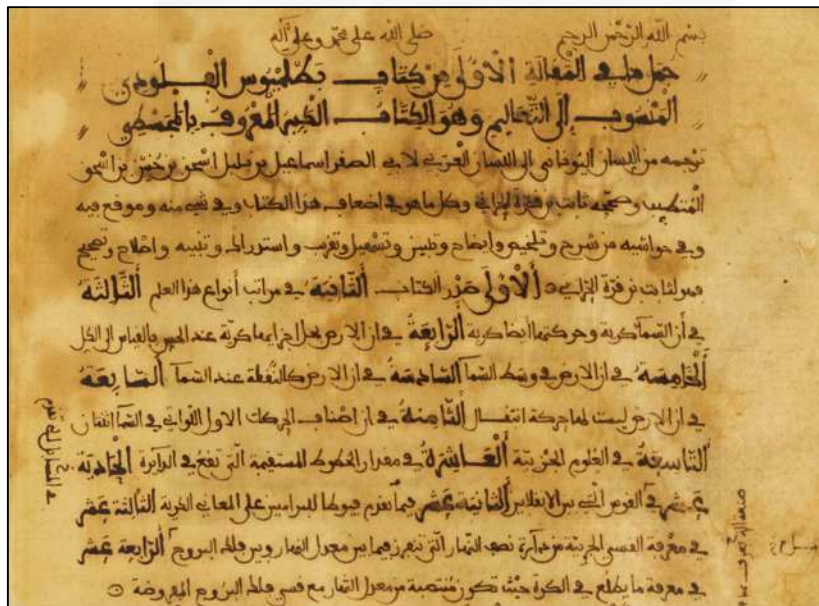 بسم الله الرحمن الرحيم صلى الله على محمد وعلى آله
جمل ما في المقالة الأولى من كتاب بطلميوس القلوذي
المنسوب إلى التعاليم وهو الكتاب الكبير المعروف بالمجسطي
ترجمه من اللسان اليوناني الى اللسان العربي لابي الصقر اسماعيل بن بلبل اسحق بن حنين بن اسحق
المتطبب وصححه ثابت بن قرة الحراني وكل ما هو في اضعاف هذا الكتاب وفي شيء منه وموقع فيه
وفي حواشيه من شرح وتلخيص وايضاح وتبيين وتسهيل وتقريب واستدراك وتنبيه واصلاح وتصحيح
فهو لثابت بن قرة الحراني الأولى صدر الكتاب الثانية في مراتب أنواع هذا العلم الثالثة
في أن السمآ كرية وحركتها ايضا كرية الرابعة في ان الارض بكل اجزايها كرية عند الحس بالقياس الى الكل
الخامسة في ان الارض في وسط السمآ السادسة في ان الارض كالنقطة عند السمآ السابعة
في ان الارض ليست لها حركة انتقال الثامنة في ان اصناف الحركات الاول اللواتي في السمآ اثنتان
التاسعة في العلوم الجزئية العاشرة في مقدار الخطوط المستقيمة التي تقع في الدائرة الحادية
عشر في القوس التي بين الانقلابين الثانية عشر فيما نقدم فيوطا للبراهين على المعاني الكرية الثالثة عشر
في معرفة القسي الجزئية من دائرة نصف النهار التي تنحرز فيما بين معدل النهار وبين فلك البروج الرابعة عشر
في معرفة ما يطلع في الكرة حيث تكون منتصبة من معدل النهار مع قسي فلك البروج المفروضة